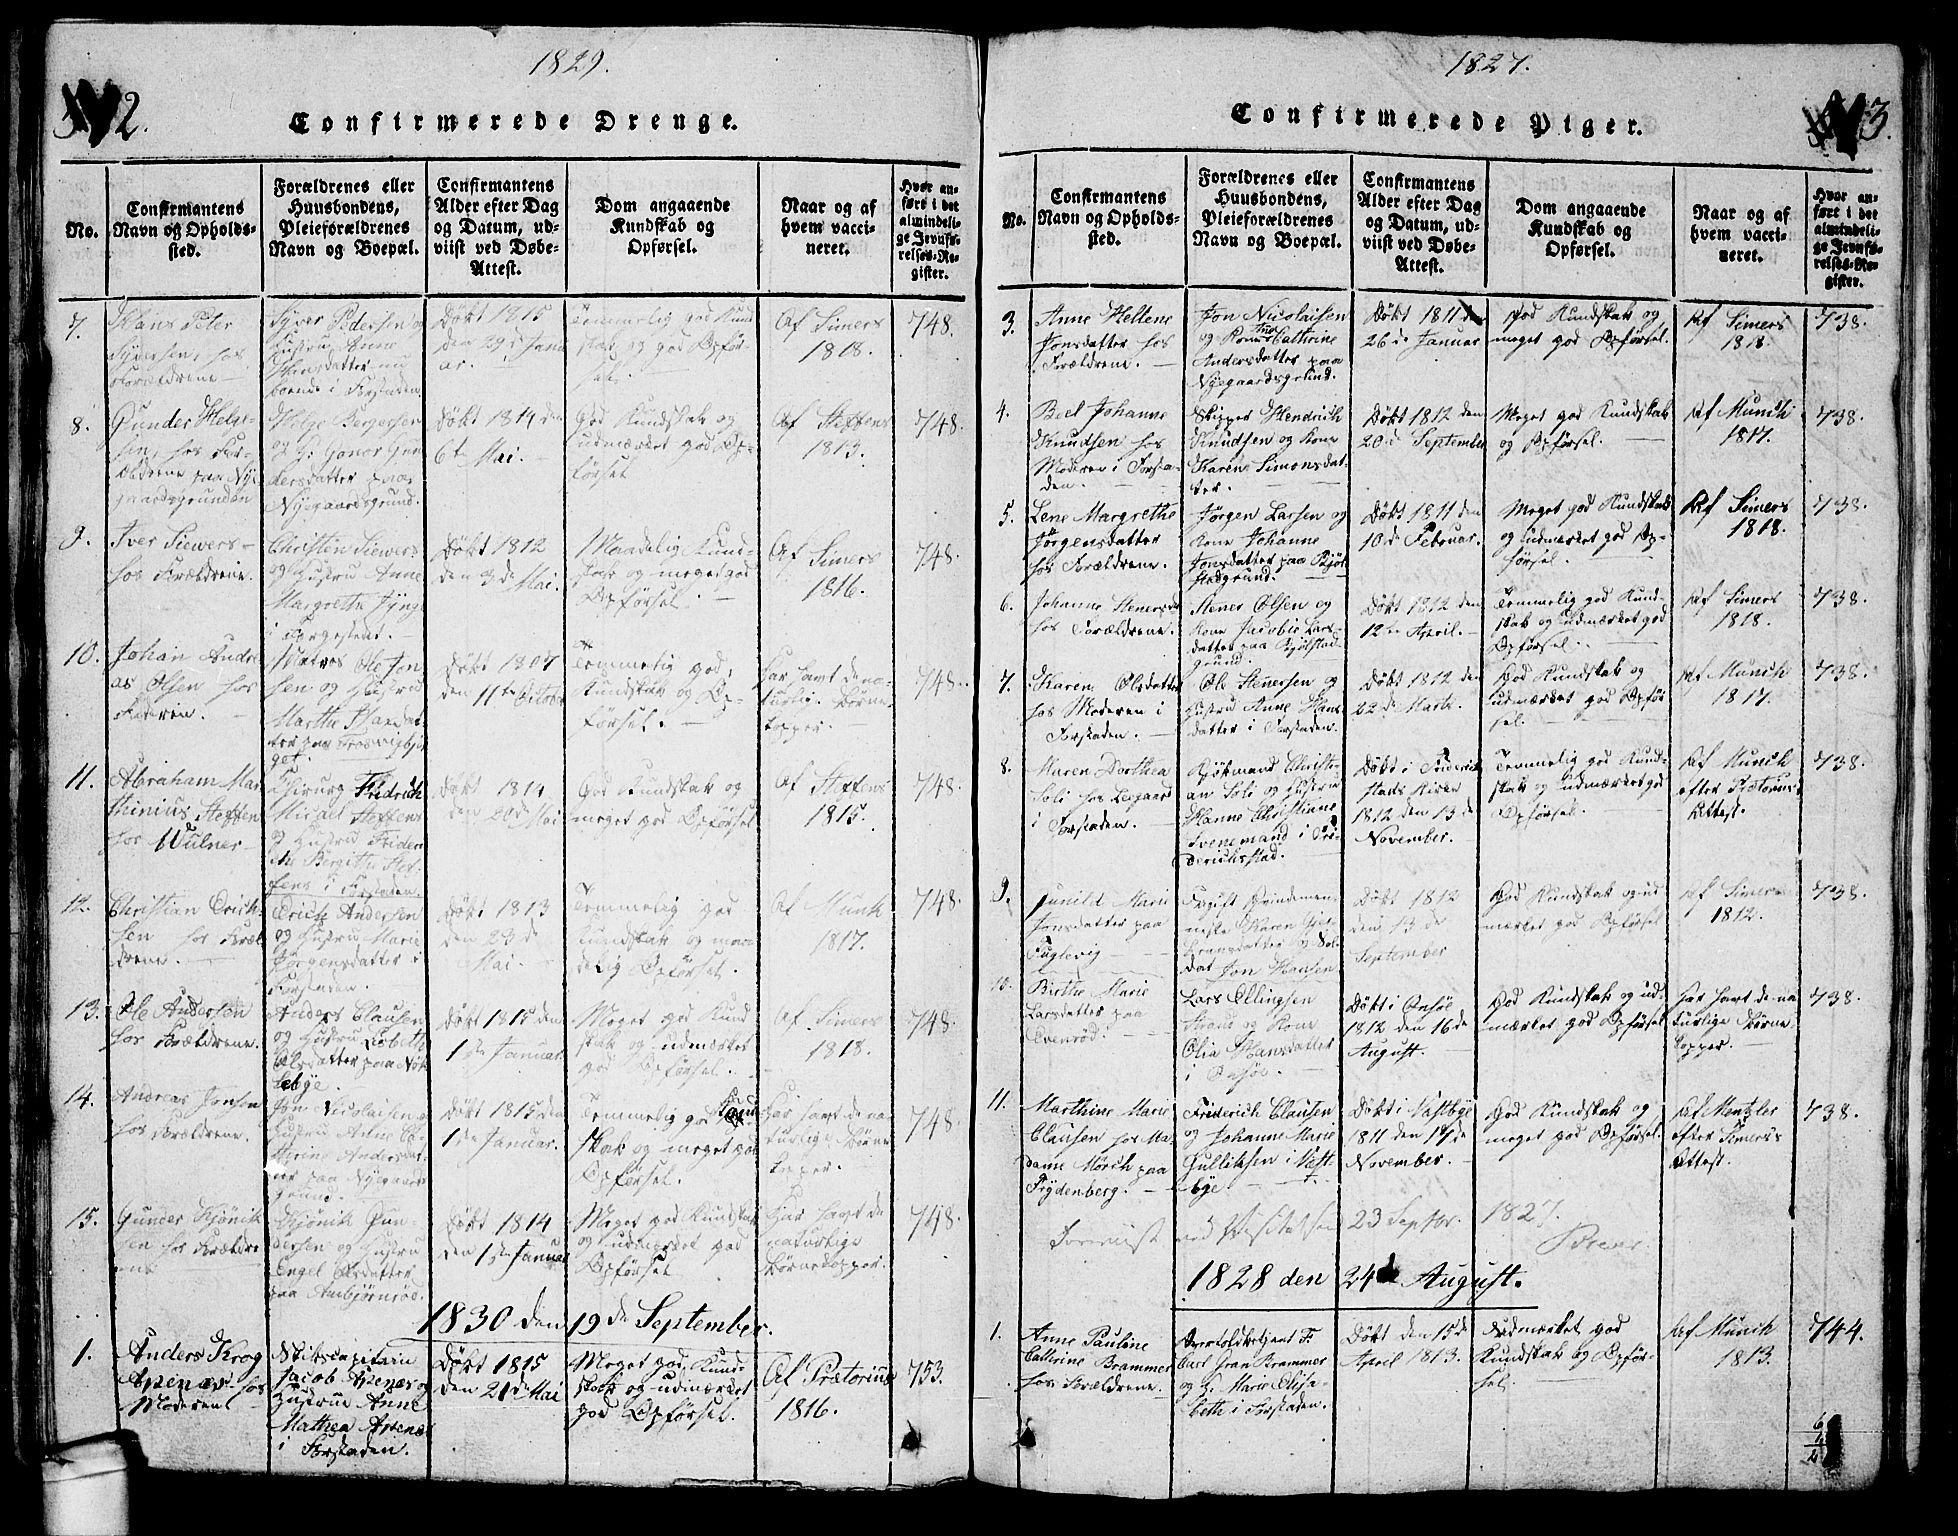 1829.
2.
Confirmerede Drenge.
No.
Confirmantens
Navn og Opholds-
sted.
Forældrenes eller
Huusbondens,
Pleieforældrenes
Navn og Boepæl.
Confirmantens
Alder efter Dag
og Datum, ud-
viist ved Døbe-
Attest.
Dom angaaende
Kundskab og
Opførsel.
Naar og af
hvem vacci-
neret.
Hvor an-
ført i det
almindeli-
ge Jevnfø-
relses-Re-
gister.
7.
Hans Peter
Syversen, hos
Forældrene
Syver Pedersen og
Hustru Anne
Hansdatter
boende i Forstaden
Døbt 1815
den 29de Janu
ar.
Temmelig god Kund
skab og god Opfør-
sel.
Af Simers
1818.
748.
8.
Gunder Helge-
sen, hos For-
ældrene paa Nye-
gaardsgrunden
Helge Bergersen
og H. Gonor Gun
dersdatter paa
Nyegaardsgrund.
Døbt 1814 den
6te Mai.
God Kundskab og
udmærket god Op-
førsel
Af Steffens
1815.
748.
9.
Iver Siewers
hos Forældrene.
Christen Siewers
og Hustru Anne
Margrethe
i Torgegaden.
Døbt 1812
den 3de Mai.
Maadelig Kund-
skab og meget god
Opførsel.
Af Simers
1816.
748.
10.
Johan Andre
as Olsen hos
Faderen.
Matros Ole Jon
sen og Hustru
Marthe Hansdat-
ter paa Trosvigbjer
get.
Døbt 1807
den 11te October
Temmelig god
Kundskab og Op-
førsel.
Har havt de na-
turlige Børne
kopper.
748.
11.
Abraham Mar
thinius Steffen
hos Wulner
Chirurg Fredrich
Michael Steffens
og Hustru Frider
icke Bergitte Stef-
fens i Forstaden.
Døbt 1814
den 20de Mai
God Kundskab og
meget god Opførsel
Af Steffens
1815.
748.
12.
Christian Erich-
sen hos Foræl
drene.
Erich Andersen
og Hustru Marie
Jørgensdatter i
Forstaden.
Døbt 1813
den 23de
Mai.
Temmelig god
Kundskab og maa
delig Opførsel.
Af Munk
1817.
748.
13.
Ole Andersen
hos Forældrene.
Anders Clausen
og Hustru Lisbeth
Olsdatter paa Nøk
lebye.
Døbt 1815 den
1ste Januar.
Meget god Kund
skab og udmærket
god Opførsel.
Af Simers
1818.
748.
14.
Andreas Jonsen
hos Forældrene.
Jon Nicolaisen og
Hustru Anne Ca-
thrine Andersdat-
ter paa Nyegaards
grund.
Døbt 1815 den
1ste Januar.
Temmelig god Kund
skab og meget god
Opførsel.
Har havt de na
turlige Børne
kopper.
748.
15.
Gunder Kjønik
sen hos Forældre
ne
Kjønik Gun-
dersen og Hustru
Engel Olsdatter
paa Ambjørnrød.
Døbt 1814
den 1ste Januar
Meget god Kundskab
og udmærket god
Opførsel.
Har havt de
naturlige
Børnekopper.
748.
1830 den 19de September.
1.
Anders Krog
Apenæs hos
Moderen
Skibscapitain
Jacob Apenæs og
Hustrue Anne
Mathea Apenæs
i Forstaden.
Døbt 1815
den 21de Mai
Meget god Kund-
skab og udmærket
god Opførsel.
Af Prætorius
1816.
753.
1827.
3.
Confirmerede Piger.
No.
Confirmantens
Navn og Opholds-
sted.
Forældrenes eller
Huusbondens,
Pleieforældrenes
Navn og Boepæl.
Confirmantens
Alder efter Dag
og Datum, ud-
viist ved Døbe-
Attest.
Dom angaaende
Kundskab og
Opførsel.
Naar og af
hvem vacci-
neret.
Hvor an-
ført i det
almindeli-
ge Jevnfø-
relses-Re-
gister.
3.
Anne Hellene
Jonsdatter hos
Forældrene.
Jon Nicolaisen
og Kone Ane Cathrine
Andersdatter paa
Nyegaardsgrund.
Døbt 1811 den
26de Januar
God Kundskab og
meget god Opførsel.
Af Simers
1818.
738.
4.
Boel Johanne
Knudsen hos
Moderen i Forsta-
den.
Skipper Hendrich
Knudsen og Kone
Karen Simonsdat-
ter.
Døbt 1812 den
20de September
Meget god Kundskab
og Opførsel.
Af Munch
1817.
738.
5.
Lene Margrethe
Jørgensdatter
hos Forældrene.
Jørgen Larsen og
Kone Johanne
Jonsdatter paa Bjøl-
stadgrund.
Døbt 1811 den
10de Februar.
Meget god Kundskab
og udmærket god Op-
førsel.
Af Simers
1818.
738.
6.
Johanne Stenersd
hos Forældrene.
Stener Olsen og
Kone Jacobie Lars
datter paa Bjølstad
grund.
Døbt 1812 den
12te April.
Temmelig god Kund-
skab og udmærket god
Opførsel.
Af Simers
1818.
738.
7.
Karen Olsdatter
hos Moderen i
Forstaden.
Ole Stenersen og
Hustru Anne Hans
datter i Forstaden.
Døbt 1812 den
22de Marts.
God Kundskab og
udmærket god Opfør
sel.
Af Munch
1817.
738.
8.
Maren Dorthea
Soli hos Legaard
i Forstaden.
Kjøbmand Christi-
an Soli og Hustru
Hanne Christinne
Svenemand i Fri-
derichstad.
Døbt i Friderich
stads Kirke
1812 den 13de
November.
Temmelig god Kund-
skab og udmærket god
Opførsel.
Af Munch
efter Prætorius
Attest.
738.
9.
Gunild Marie
Jonsdatter paa
Fuglevig
Frigift Qvindemen-
neske Karen Gul-
brandsdatter og Sol-
dat Jon Hansen
Døbt 1812
den 13de
September
God Kundskab og ud-
mærket god Opførsel
Af Simers
1812.
738.
10.
Birthe Marie
Larsdatter paa
Evenrød.
Lars Ellingsen
Strand og Kone
Olia Hansdatter
i Onsøe.
Døbt i Onsøe
1812 den 16de
August.
God Kundskab og ud-
mærket god Opførsel
Har havt de na
turlige Børne
kopper.
738.
11.
Marthine Marie
Clausen hos Ma-
dame Mørch paa
Frydenberg.
Friderich Clausen
og Johanne Marie
Gulliksen i Vest
bye.
Døbt i Vestbye
1811 den 17de
November.
God Kundskab og
meget god Opførsel.
Af Mentzler
efter Simers's
Attest.
738.
Foreviist ved Visitatsen 23 Septbr. 1827.
1828 den 24de August.
1.
Anne Pauline
Cathrine Brammer
hos Forældrene.
Overtoldbetjent F.
Carl Jvan Brammer
og H. Marie Elisa-
beth i Forstaden.
Døbt den 15de
April 1813.
Udmærket god
Kundskab og Opfør-
sel.
Af Munch
1813.
744.